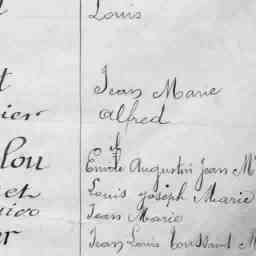 Louis
Jean Marie
ier Alfred
lou Emile Augustin Jean M
et Louis joseph Marie
Jean Marie
er Jean Louis Toussaint M